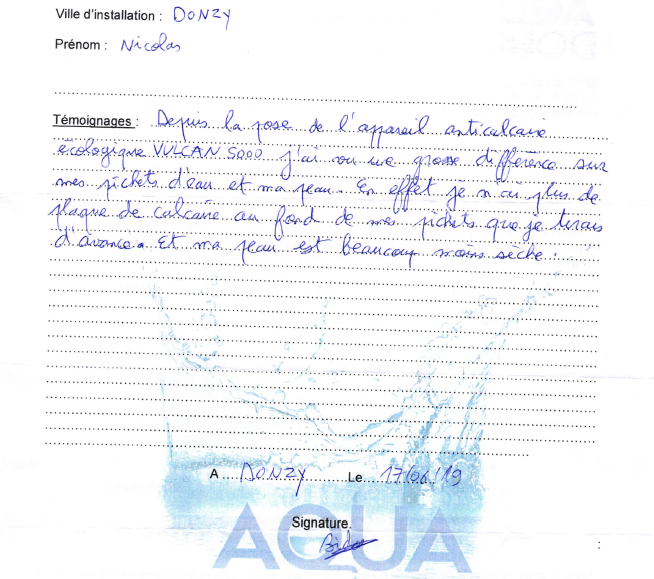 Ville d'installation : DONZY
Prénom : Nicolas
Témoignages : Depuis la pose de l'appareil anticalcaire
écologique VULCAN 5000 j'ai vu une grosse différence sur
mes pichets d'eau et ma peau. En effet je n'ai plus de
plaque de calcaire au fond de mes pichets que je tirais
d'avance. Et ma peau est beaucoup moins sèche.
A DONZY Le 17/06/19
Signature
AQUA